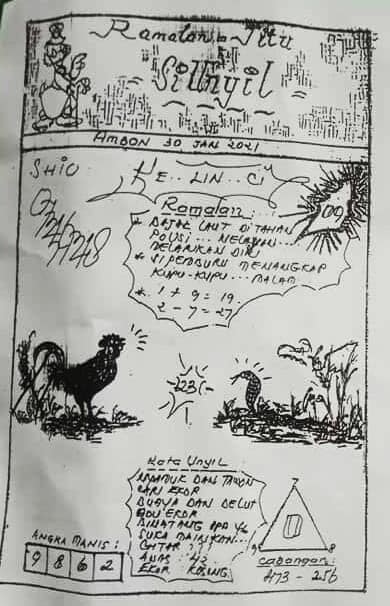 Ramalan - Jitu
Si Unyil
AMBON 30 JAN 2021
SHIO
KE.. LIN.. CI
Ramalan:
* BAJAK LAUT DI TAHAN
POLISI... NELAYAN...
MELARIKAN DIRI
* SI PEMBURU MENANGKAP
KUPU-KUPU... MALAM
*. 1 + 9 = 19.
2 - 7 = 27
Kata Unyil:
NYAMUK DAN TAWON
CARI EKOR
BUAYA DAN BELUT
ADU EKOR
BINATANG APA YG
SUKA MAINKAN...
GITAR ???
EKOR
ANGKA MANIS:
9 8 6 2
7
9 8
Cabangan:
473 - 256